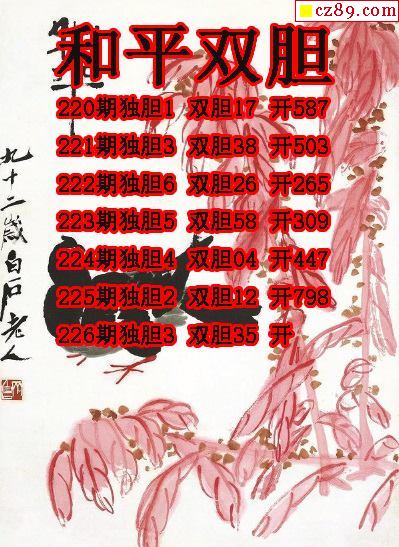 cz89.com
和平双胆
220期独胆1 双胆17 开587
221期独胆3 双胆38 开503
222期独胆6 双胆26 开265
223期独胆5 双胆58 开309
224期独胆4 双胆04 开447
225期独胆2 双胆12 开798
226期独胆3 双胆35 开
九十二歲白石老人